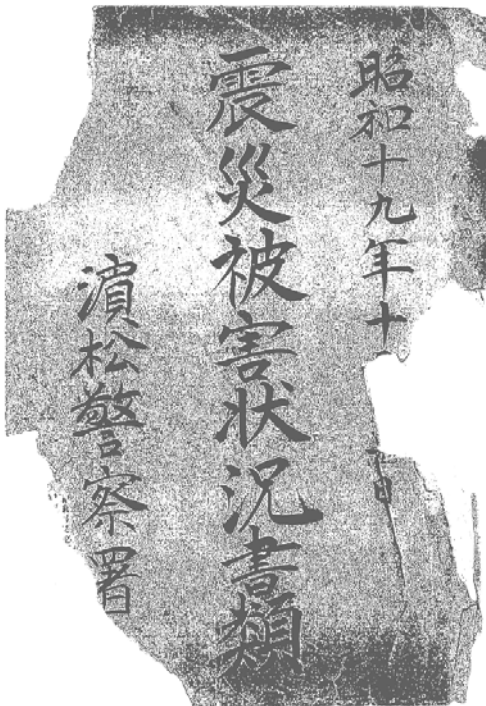 昭和十九年十
日
震災被害状況書類
濱松警察署